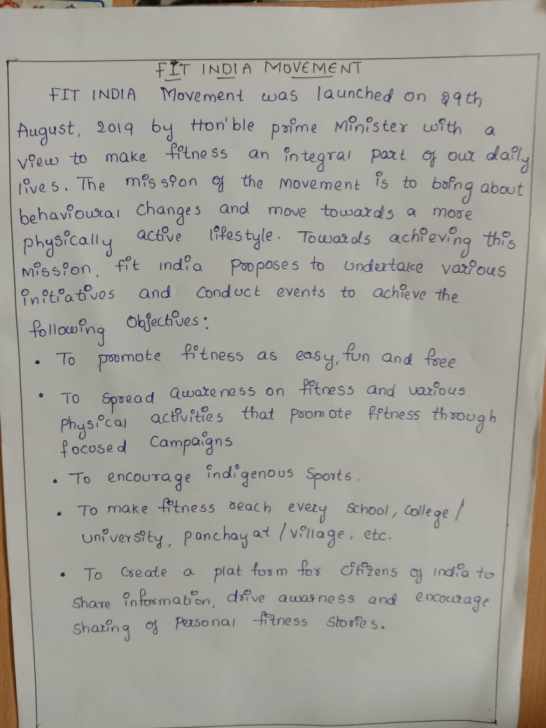 FIT INDIA MOVEMENT
FIT INDIA Movement was launched on 29th
August, 2019 by Hon'ble prime Minister with a
view to make fitness an integral part of our daily
lives. The mission of the movement is to bring about
behavioural changes and move towards a more
physically active lifestyle. Towards achieving this
mission, fit india proposes to undertake various
initiativos and conduct events to achieve the
following objectives:
• To promote fitness as easy, fun and free
• To spread awareness on fitness and various
physical activities that promote fitness through
focosed campaigns
• To encourage indigenous sports.
• To make fitness reach every school, college/
university, panchayat /village, etc.
• To create a plat form for citizens of india to
share information, drive awarness and encourage
sharing of personal fitness stories.